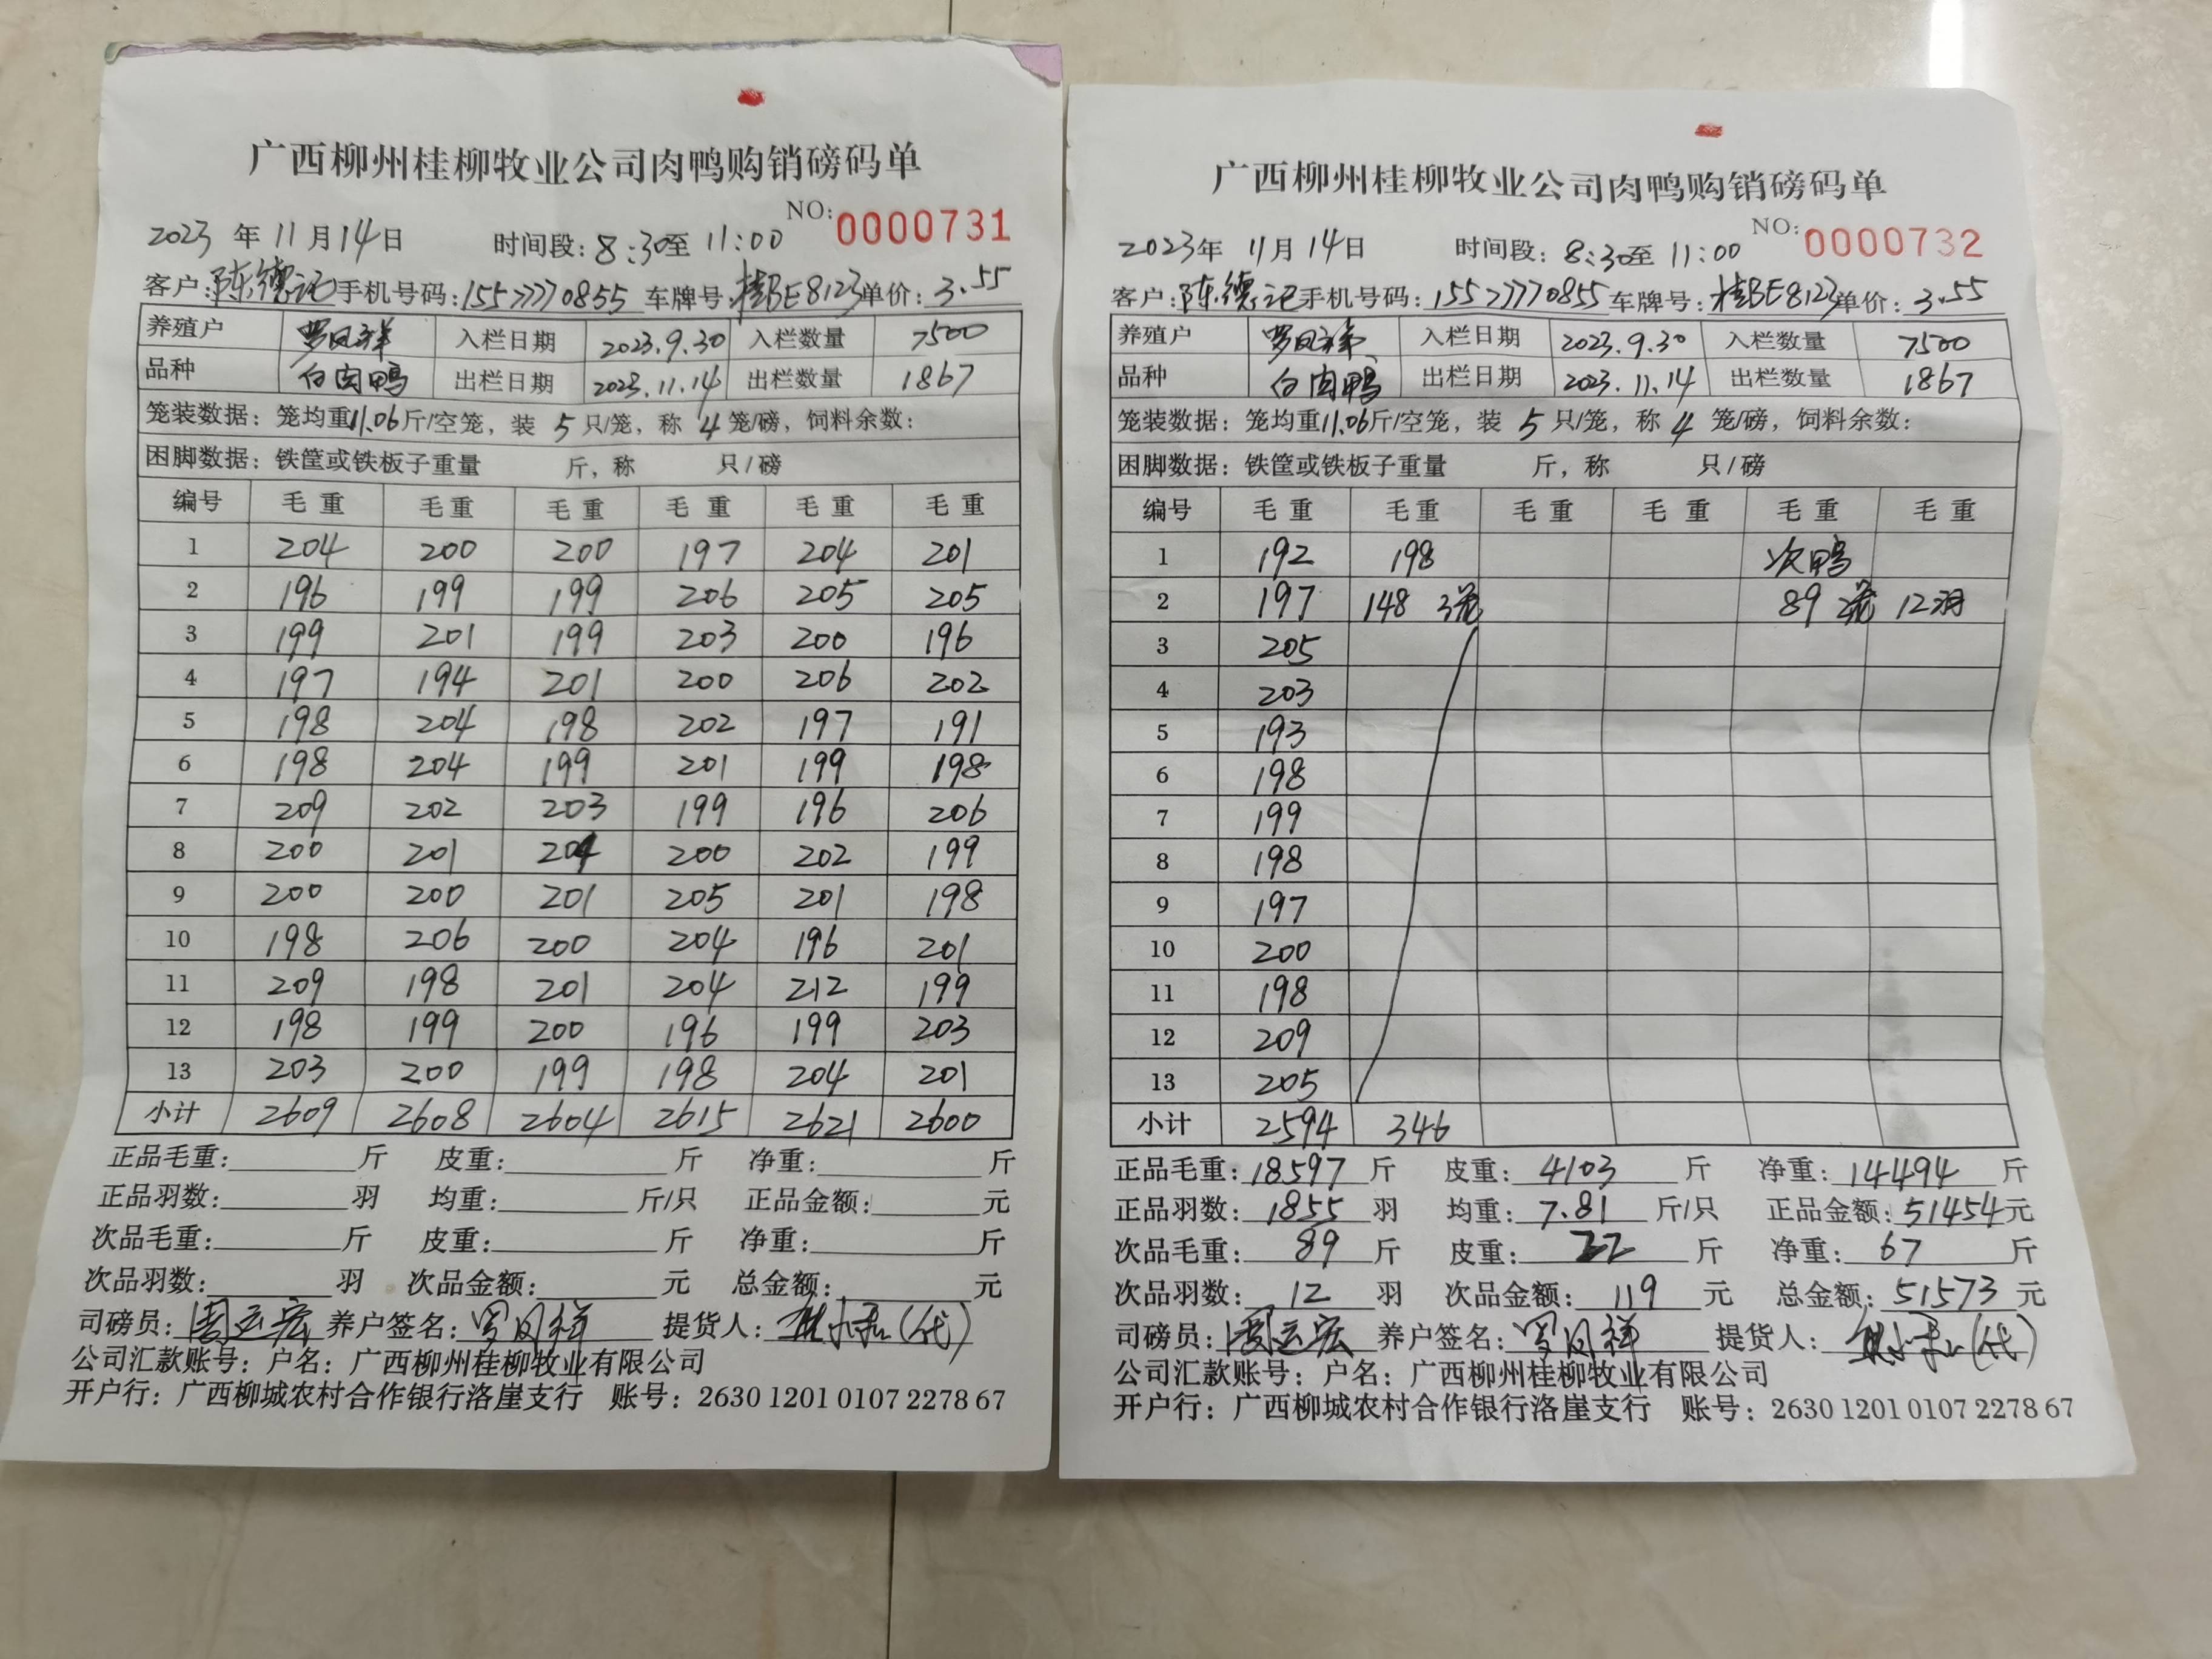 广西柳州桂柳牧业公司肉鸭购销磅码单
NO: 0000731
2023 年 11 月 14 日 时间段: 8:30 至 11:00
客户: 陈德记 手机号码: 15577770855 车牌号: 桂BE8123 单价: 3.55
养殖户 罗凤祥 入栏日期 2023.9.30 入栏数量 7500
品种 白肉鸭 出栏日期 2023.11.14 出栏数量 1867
笼装数据: 笼均重11.06斤/空笼, 装 5 只/笼, 称 4 笼/磅, 饲料余数:
困脚数据: 铁筐或铁板子重量 斤, 称 只/磅
编号 毛重 毛重 毛重 毛重 毛重 毛重
1 204 200 200 197 204 201
2 196 199 199 206 205 205
3 199 201 199 203 200 196
4 197 194 201 200 206 202
5 198 204 198 202 197 191
6 198 204 199 201 199 198
7 209 202 203 199 196 206
8 200 201 204 200 202 199
9 200 200 201 205 201 198
10 198 206 200 204 196 201
11 209 198 201 204 212 199
12 198 199 200 196 199 203
13 203 200 199 198 204 201
小计 2609 2608 2604 2615 2621 2600
正品毛重: 斤 皮重: 斤 净重: 斤
正品羽数: 羽 均重: 斤/只 正品金额: 元
次品毛重: 斤 皮重: 斤 净重: 斤
次品羽数: 羽 次品金额: 元 总金额: 元
司磅员: 周运宏 养户签名: 罗凤祥 提货人: (代)
公司汇款账号: 户名: 广西柳州桂柳牧业有限公司
开户行: 广西柳城农村合作银行洛崖支行 账号: 2630 1201 0107 2278 67
广西柳州桂柳牧业公司肉鸭购销磅码单
NO: 0000732
2023年 11月 14日 时间段: 8:30至 11:00
客户: 陈德记 手机号码: 15577770855 车牌号: 桂BE8123 单价: 3.55
养殖户 罗凤祥 入栏日期 2023.9.30 入栏数量 7500
品种 白肉鸭 出栏日期 2023.11.14 出栏数量 1867
笼装数据: 笼均重11.06斤/空笼, 装 5 只/笼, 称 4 笼/磅, 饲料余数:
困脚数据: 铁筐或铁板子重量 斤, 称 只/磅
编号 毛重 毛重 毛重 毛重 毛重 毛重
1 192 198 次鸭
2 197 148 3笼 89 2笼 12羽
3 205
4 203
5 193
6 198
7 199
8 198
9 197
10 200
11 198
12 209
13 205
小计 2594 346
正品毛重: 18597 斤 皮重: 4103 斤 净重: 14494 斤
正品羽数: 1855 羽 均重: 7.81 斤/只 正品金额: 51454元
次品毛重: 89 斤 皮重: 22 斤 净重: 67 斤
次品羽数: 12 羽 次品金额: 119 元 总金额: 51573 元
司磅员: 周运宏 养户签名: 罗凤祥 提货人: (代)
公司汇款账号: 户名: 广西柳州桂柳牧业有限公司
开户行: 广西柳城农村合作银行洛崖支行 账号: 2630 1201 0107 2278 67